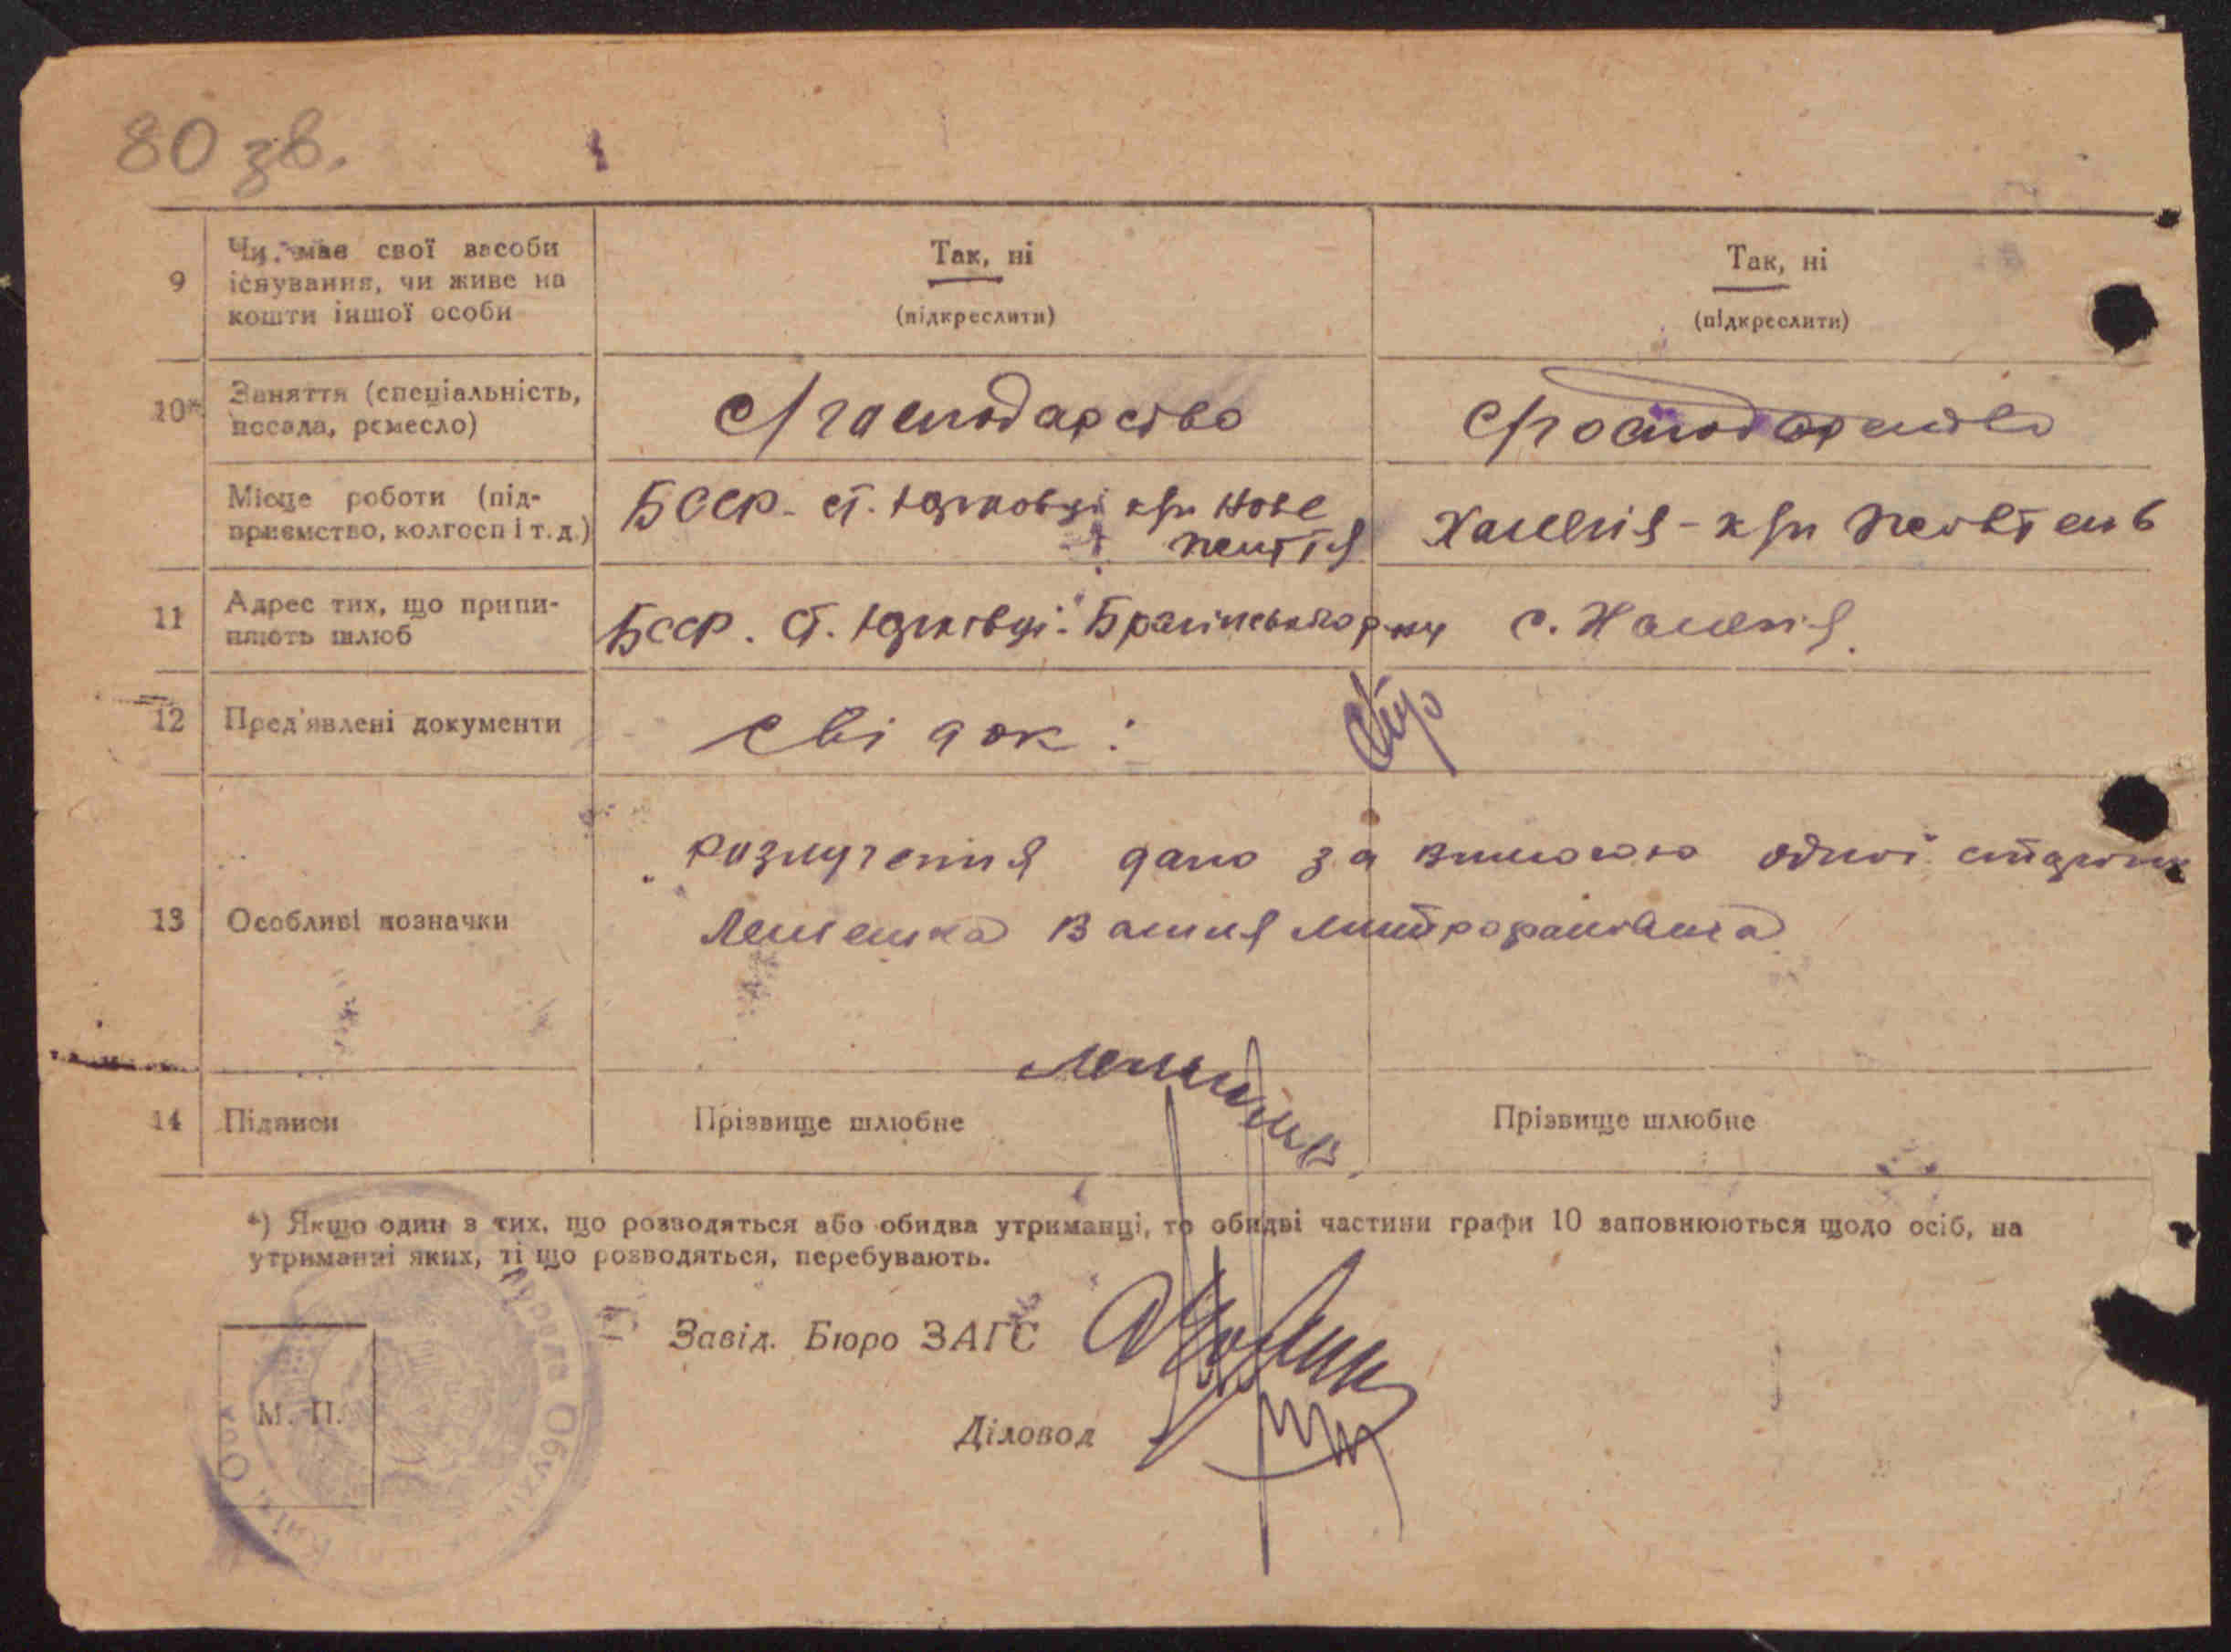 80 зв.
9
Чи має свої засоби
існування, чи живе на
кошти іншої особи
Так, ні
(підкреслити)
Так, ні
(підкреслити)
10*
Заняття (спеціальність,
посада, ремесло)
с/господарство
с/господарство
Місце роботи (під-
приємство, колгосп і т. д.)
БССР - ст. Юрковці к/гп Нове
життя
Халепія - к/гп Жовтень
11
Адрес тих, що припи-
няють шлюб
БССР. ст. Юрківці. Брагінського р-ну
с. Халепія.
12
Пред'явлені документи
свідок:
13
Особливі позначки
розлучення дано за вимогою одної сторони
Василя Митрофановича
14
Підписи
Прізвище шлюбне
Прізвище шлюбне
*) Якщо один з тих, що розводяться або обидва утриманці, то обидві частини графи 10 заповнюються щодо осіб, на
утриманні яких, ті що розводяться, перебувають.
Завід. Бюро ЗАГС
М. П.
Діловод